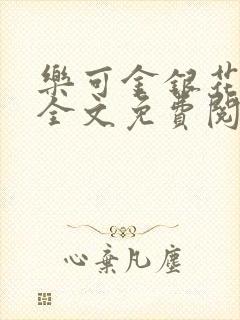 樂可金銀花
全文免費閱
心棄凡塵